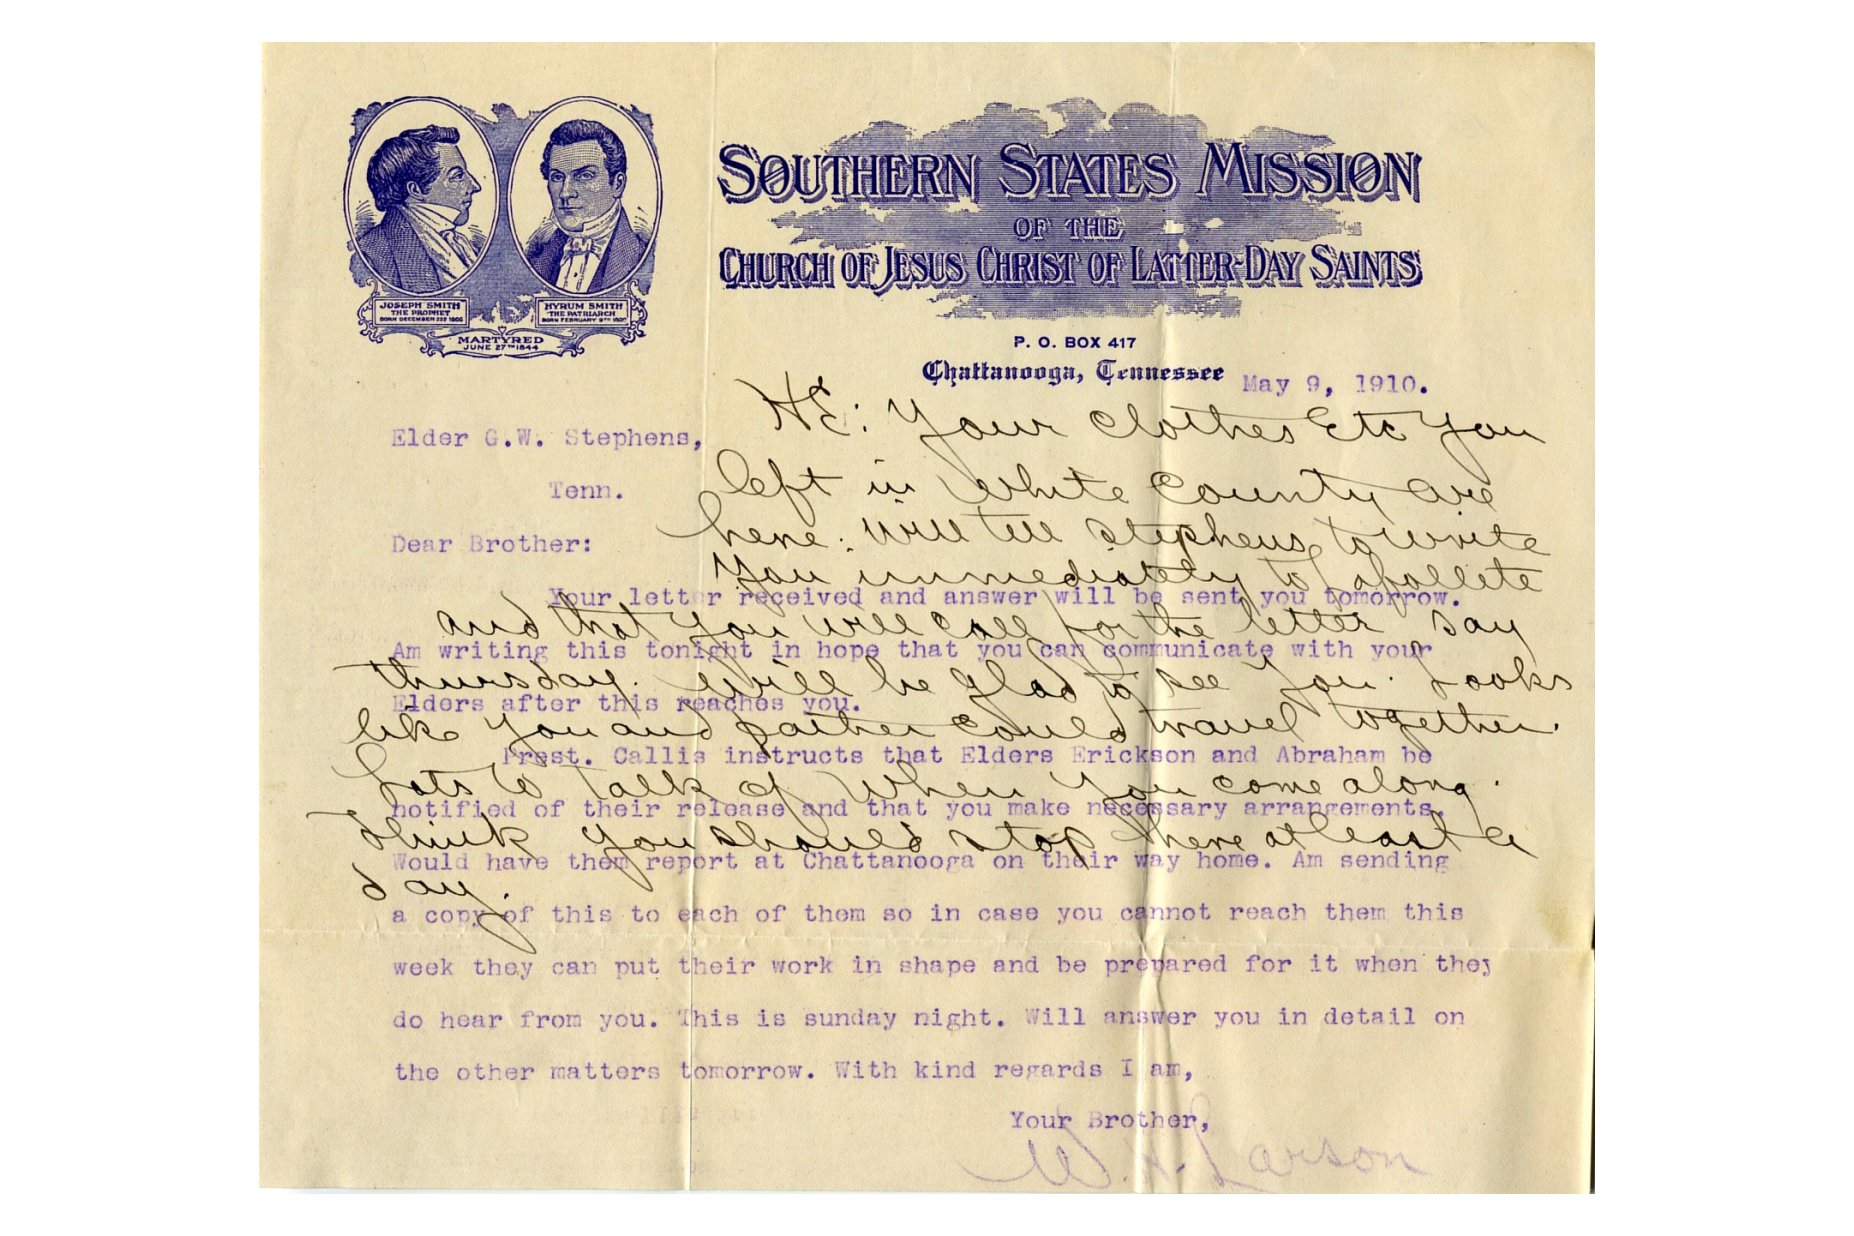 JOSEPH SMITH
THE PROPHET
BORN DECEMBER 23D 1805
HYRUM SMITH
THE PATRIARCH
BORN FEBRUARY 9TH 1800
MARTYRED
JUNE 27TH 1844
SOUTHERN STATES MISSION
OF THE
CHURCH OF JESUS CHRIST OF LATTER-DAY SAINTS
P. O. BOX 417
Chattanooga, Tennessee
May 9, 1910.
Elder G.W. Stephens,
Tenn.
Dear Brother:
Your letter received and answer will be sent you tomorrow.
Am writing this tonight in hope that you can communicate with your
Elders after this reaches you.
Prest. Callis instructs that Elders Erickson and Abraham be
notified of their release and that you make necessary arrangements.
Would have them report at Chattanooga on their way home. Am sending
a copy of this to each of them so in case you cannot reach them this
week they can put their work in shape and be prepared for it when they
do hear from you. This is sunday night. Will answer you in detail on
the other matters tomorrow. With kind regards I am,
Your Brother,
W. H. Larson
Your clothes Etc you
left in White County are
here. Will tell Stephens to write
you immediately to Lapollette
and that you will call for the letter say
thursday. Will be glad to see you. Looks
like you and father could travel together.
Lots to talk of when you come along.
Think you should stop here at least a
day.